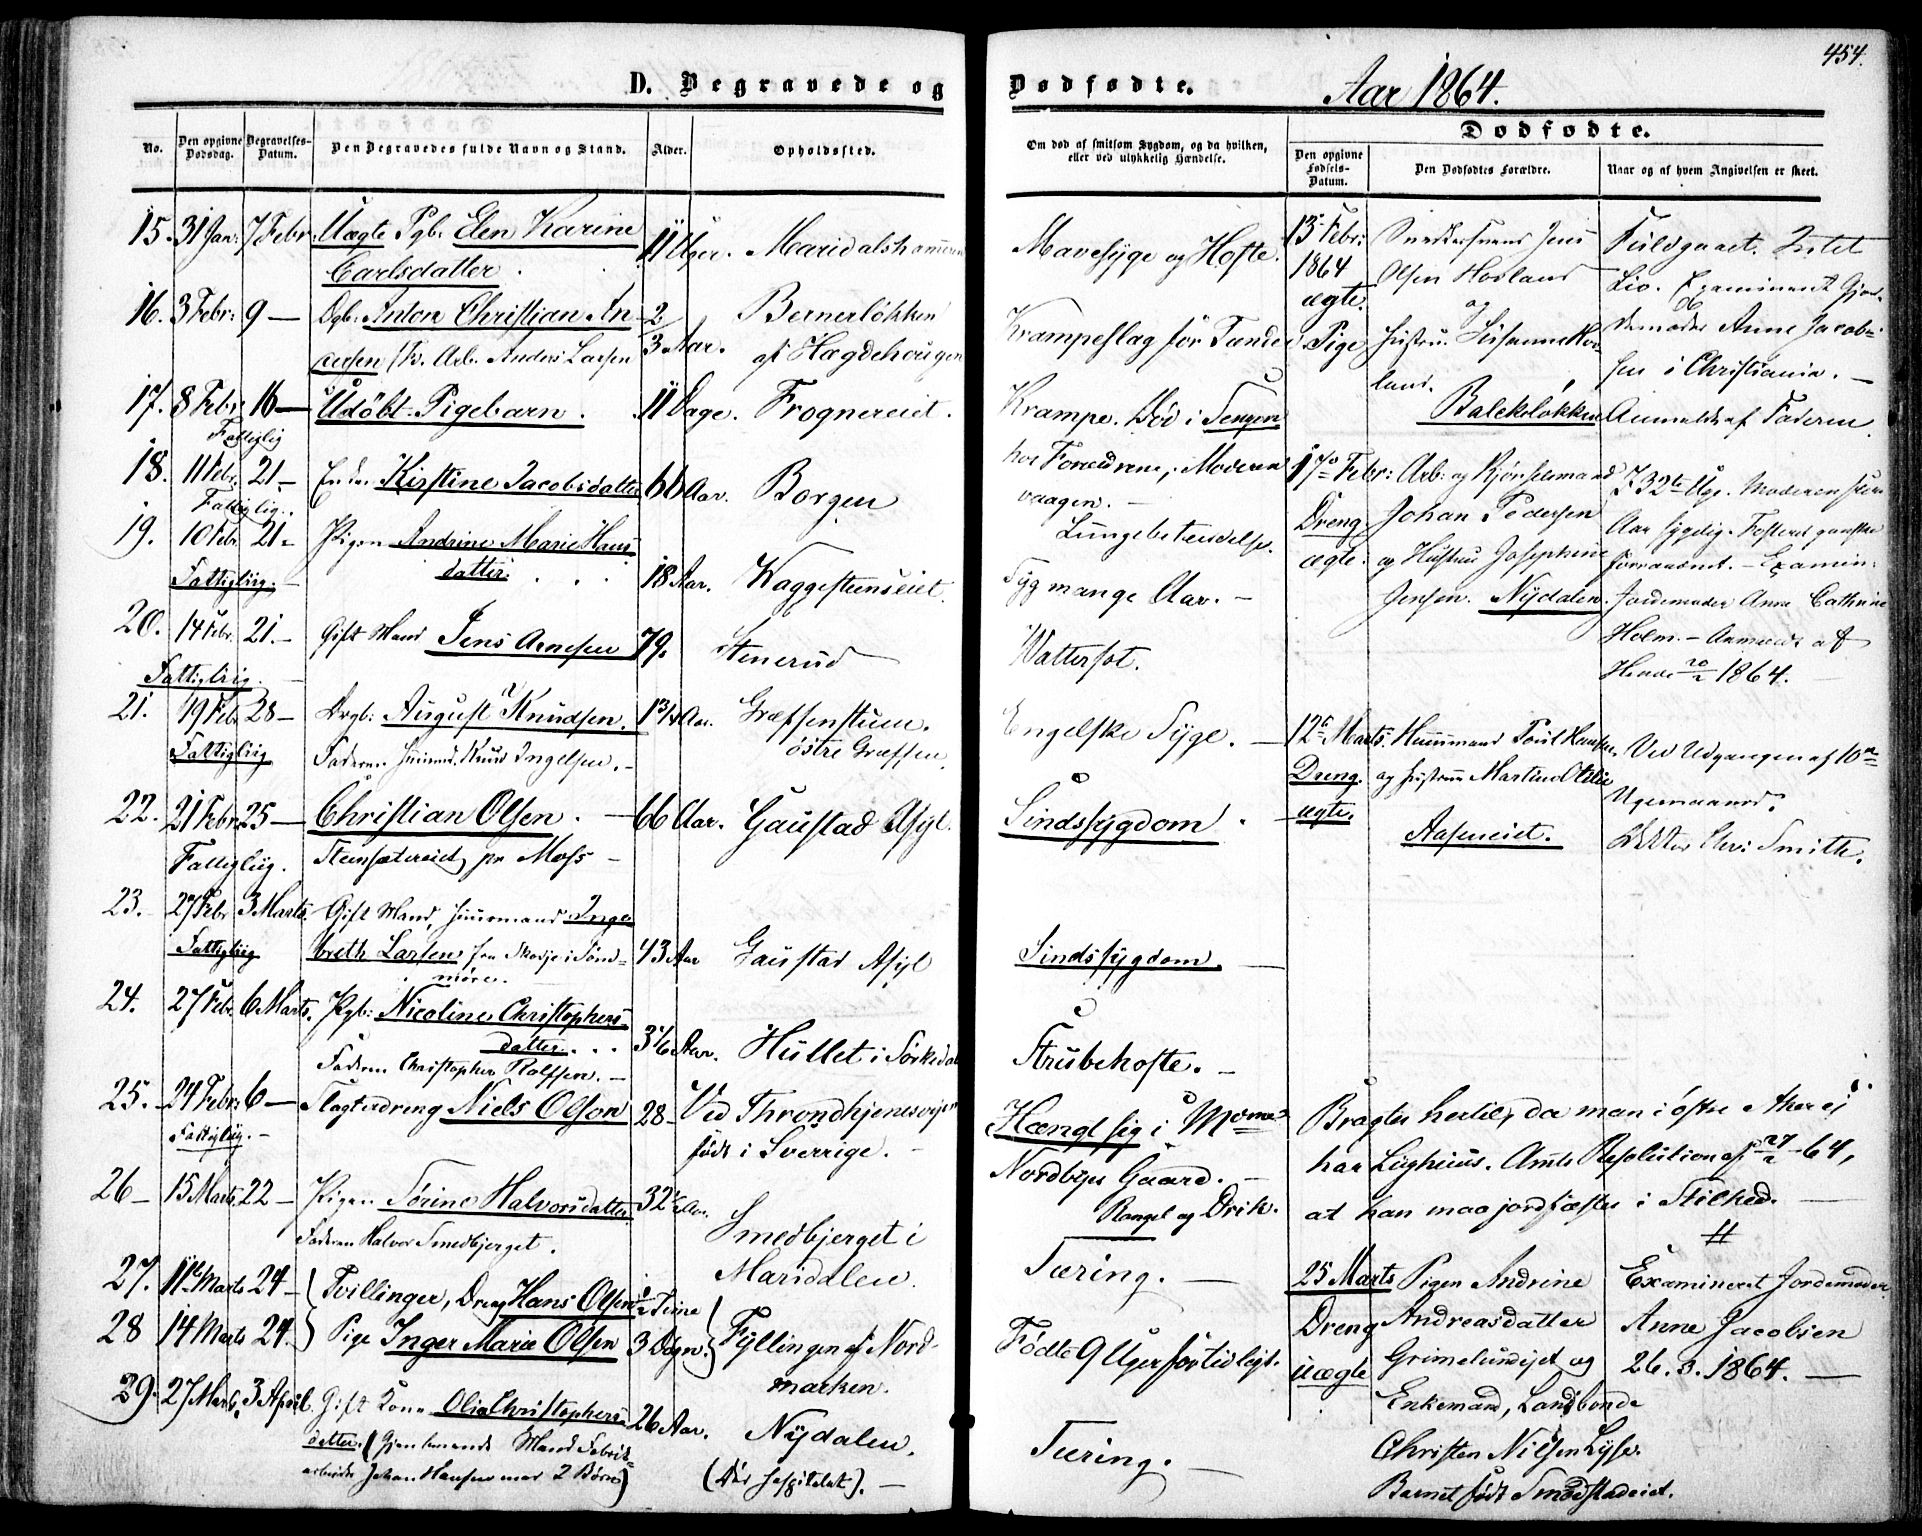 454.
D. Begravede og Dødfødte.
Aar 1864.
No.
Den opgivne Dødsdag.
Begravelses-Datum.
Den Begravedes fulde Navn og Stand.
Alder.
Opholdssted.
Om død af smitsom Sygdom, og da hvilken,
eller ved ulykkelig Hændelse.
Dødfødte.
Den opgivne Fødsels-Datum.
Den Dødfødtes Forældre.
Naar og af hvem Angivelsen er skeet.
15. 31 Jan: 7 Febr. Uægte Pgb. Elen Karine
Carlsdatter.
11 Uger.
Mavesyge og Hoste.
16. 3 Febr: 9 — Dgb: Anton Christian An-
2/3 Aar.
Bernerløkken
af Hægdehougen
17. 8 Febr 16 — Udøbt Pigebarn. 11 Dage. Frognereiet.
Krampe. Død i Sengen
hos Forældrene, Moderen
vaagen. —
Fattiglig
18. 11 Febr. 21 — Kirstine Jacobsdatter Aar. Borgen
Lungebetændelse.
Fattiglig.
19. 10 Febr. 21 — Pigen Andrine Marie Hans
datter.
18 Aar. Waggesteenseiet.
Syg mange Aar. —
Fattiglig.
20. 14 Febr. 21. — Gift Mand Jens Arnesen 79. Stenerud
Wattersot.
Fattiglig.
21. 19 Feb 28 — Drgb: August Knudsen. 1 3/4 Aar. Græfsenstuen.
østre Græfsen.
Engelske Syge. —
Fattiglig
Faderen Knud Ingelsen. —
22. 21 Febr. 25 — Christian Olsen. — 66 Aar. Gaustad Asyl.
Sindssygdom.
Fattiglig. pr Moss —
23. 27 Febr 3 Marts. Gift Mand, Huusmand Inge
breth Larsen fra Skodje i Sønd-
møre.
43 Aar Gaustad Asyl
Sindssygdom. —
Fattiglig
24. 27 Febr. 6 Marts. Pgb: Nicoline Christophers-
datter.
3 1/6 Aar. Hullet i Sørkedal
Strubehoste. —
Faderen Christopher Rolfsen. —
25. 24 Febr: 6 — Slagterdreng Niels Olson 28 — Ved Throndhjemsveien
født i Sverrige. —
Fattiglig. —
Hængt sig i
Nordbyes Gaard. —
Rangel og Drik.
Bragtes hertil, da man i østre Aker ei
har Liighuus. Amts Resolution af 27/2 - 64,
at han maa jordfæstes i Stilhed. —
26 — 15 Marts 22 — Pigen Sørine Halvorsdatter 32 Aar.
Smedbjerget i
Maridalen.
Faderen Halvor Smedbjerget.
Tæring. —
27. 11te Marts 24 — Tvillinger, Dreng Hans Olsen Time
28 14 Marts 24. Pige Inger Marie Olsen 3 Døgn.
Fyllingen af Nord-
marken.
Fødte 9 Uger for tidligt.
29. 27 Marts, 3 April. Gift Kone Olia Christophers-
datter. (Gjenlevende Mand Fabrik-
arbeider Johan Hansen med 2 Børn)
26 Aar. Nydalen.
(Hospitalet). —
Tæring. —
13 Febr:
1864
ægte
Pige
Jens
Olsen Hovland
og
Hustru
land.
Balckeløkken
Fuldgaaet. Intet
Liv. Examineret Gjor-
demoder Anne Jacob-
sen i Christiania. —
Anmeldt af Faderen.
17de Febr:
Dreng
ægte
Arb: og
Johan Pedersen
og Hustru Josephine
Jensen. Nydalen.
I 32te Uge. Moderen
Aar sygelig. Fosteret ganske
forraadnet. — Examin:
Jordemoder Anne Cathrine
Holm. — Anmeldt af
Hende 20/2 1864. —
12te Marts.
Dreng.
ægte.
Huusmand Poul Hansen
og Hustru
Aaseneiet.
Ved Udgangen af 10de
Ugemaaned.
Doktor Chr: Smith.
25 Marts
Dreng
uægte
Pigen Andrine
Andreasdatter
Grimelundeiet og
Enkemand, Landbonde
Christen Nilsen Lysø.
Barnet født Smedstadeiet.
Examineret Jordemoder
Anne Jacobsen
26. 3. 1864. —